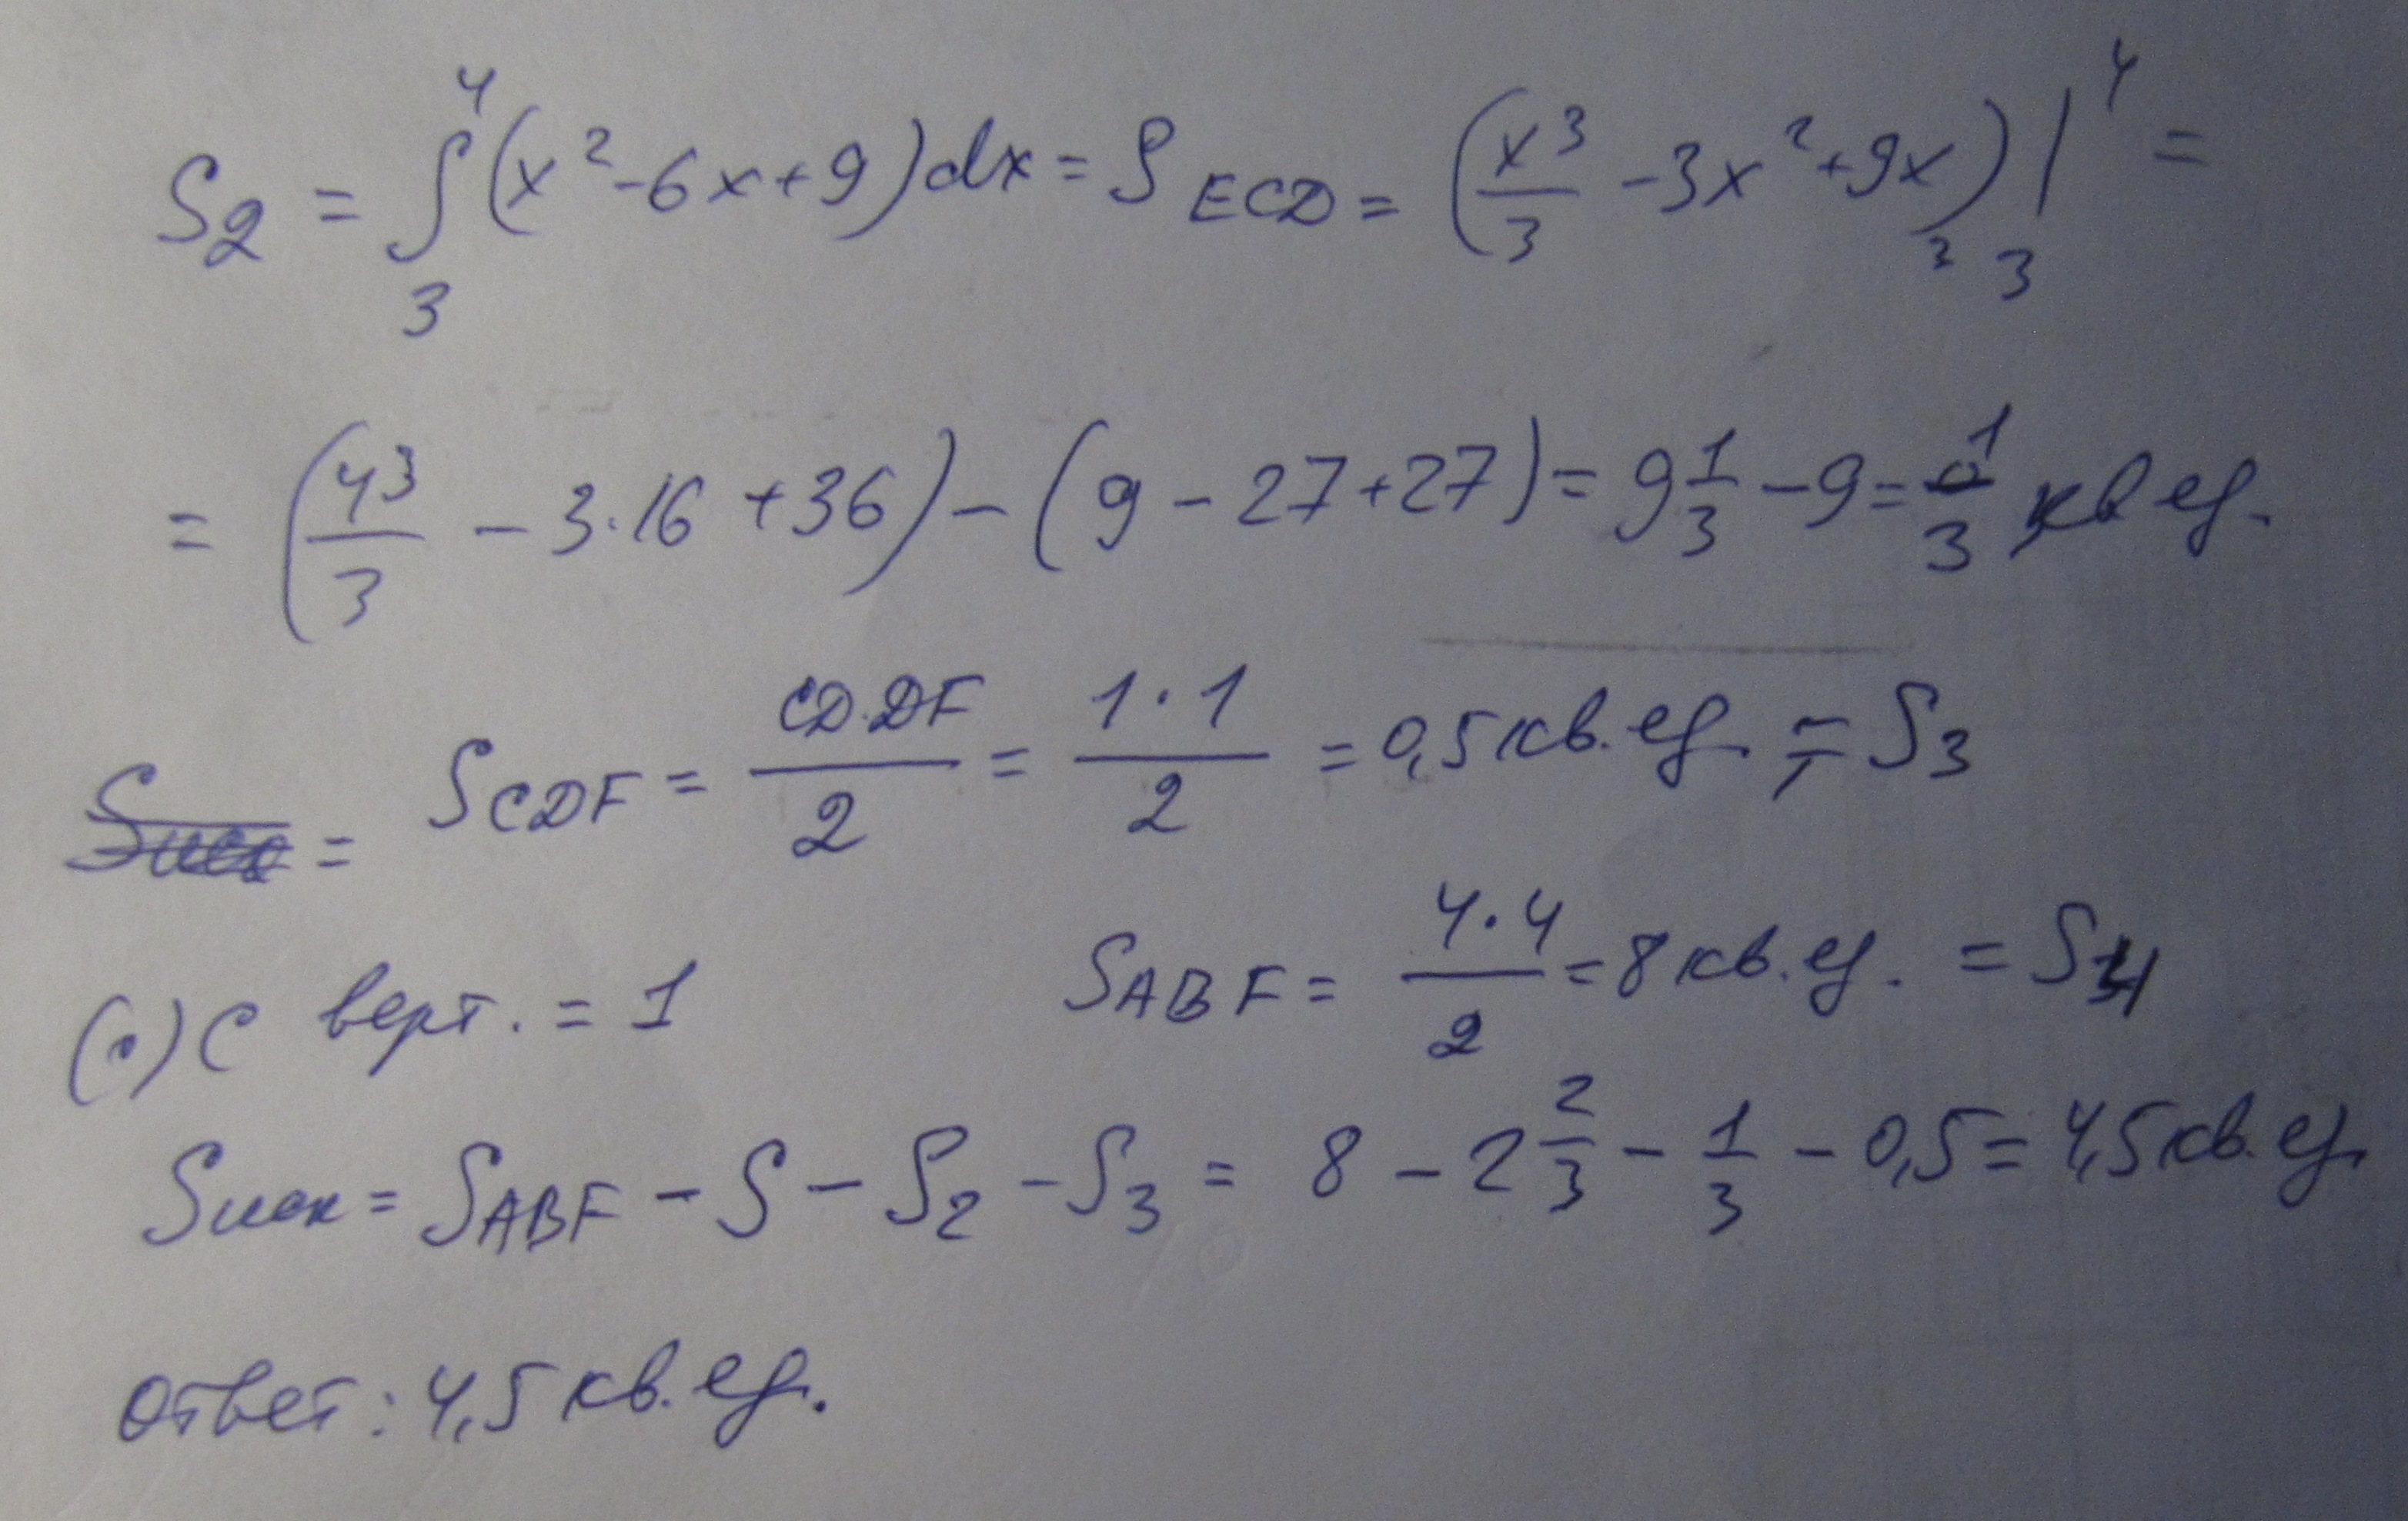 S₂ = ∫₃⁴ (x² - 6x + 9) dx = S ECD = (x³/3 - 3x² + 9x) |₃⁴ =
= (4³/3 - 3·16 + 36) - (9 - 27 + 27) = 9 1/3 - 9 = 1/3 кв ед.
= S CDF = CD·DF/2 = 1·1/2 = 0,5 кв. ед. = S₃
(·) C верт. = 1 S ABF = 4·4/2 = 8 кв. ед. = S₄
Sиск = S ABF - S - S₂ - S₃ = 8 - 2 2/3 - 1/3 - 0,5 = 4,5 кв. ед.
Ответ: 4,5 кв. ед.